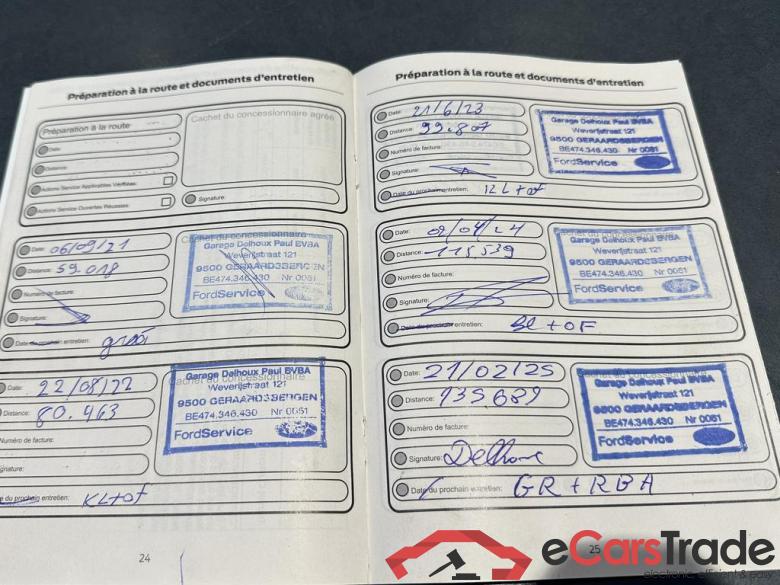 Préparation à la route et documents d'entretien
Préparation à la route
Date:
Distance:
Actions Service Applicables Vérifiées:
Actions Service Ouvertes Réussies:
Cachet du concessionnaire agréé
Signature:
Date: 06/09/21
Distance: 59.018
Numéro de facture:
Signature:
Date du prochain entretien:
Cachet du concessionnaire
Garage Dalhoux Paul BVBA
Weverijstraat 121
9500 GERAARDSBERGEN
BE474.346.430 Nr 0051
FordService
Date: 22/08/22
Distance: 80.463
Numéro de facture:
Signature:
Date du prochain entretien: KL+OF
Cachet du concessionnaire
Garage Dalhoux Paul BVBA
Weverijstraat 121
9500 GERAARDSBERGEN
BE474.346.430 Nr 0051
FordService
24
Préparation à la route et documents d'entretien
Date: 21/6/23
Distance: 99.807
Numéro de facture:
Signature:
Date du prochain entretien:
Garage Dalhoux Paul BVBA
Weverijstraat 121
9500 GERAARDSBERGEN
BE474.346.430 Nr 0051
FordService
Date: 02/04/24
Distance: 115,539
Numéro de facture:
Signature:
Date du prochain entretien:
Garage Dalhoux Paul BVBA
Weverijstraat 121
9500 GERAARDSBERGEN
BE474.346.430 Nr 0051
FordService
Date: 21/02/25
Distance: 135689
Numéro de facture:
Signature:
Date du prochain entretien: GR + RBA
Garage Dalhoux Paul BVBA
Weverijstraat 121
9500 GERAARDSBERGEN
BE474.346.430 Nr 0051
FordService
25
eCarsTrade